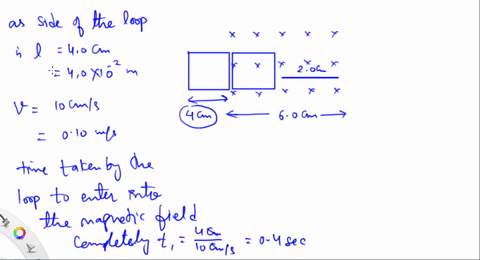 as side of the loop
is l = 4.0 cm
= 4.0 × 10⁻² m
V = 10 cm/s
= 0.10 m/s
time taken by the
loop to enter into
the magnetic field
completely t₁ = 4 cm / 10 cm/s = 0.4 sec
x x x x x
x x x x x
2.0 cm
x x x x x
4 cm
6.0 cm